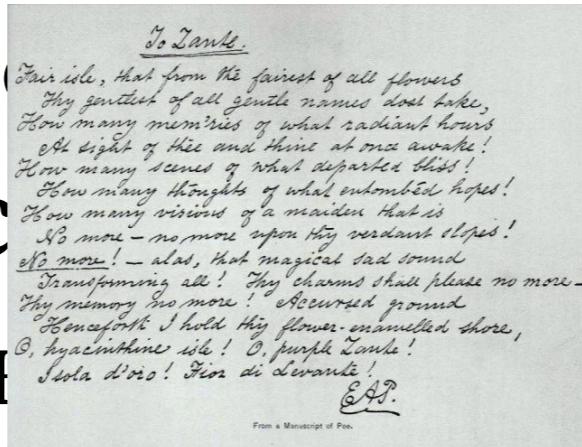 To Zante.
Fair isle, that from the fairest of all flowers
Thy gentlest of all gentle names dost take,
How many mem'ries of what radiant hours
At sight of thee and thine at once awake!
How many scenes of what departed bliss!
How many thoughts of what entombéd hopes!
How many visions of a maiden that is
No more — no more upon thy verdant slopes!
No more! — alas, that magical sad sound
Transforming all! Thy charms shall please no more —
Thy memory no more! Accursed ground
Henceforth I hold thy flower-enamelled shore,
O, hyacinthine isle! O, purple Zante!
Isola d'oro! Fior di Levante!
EAP.
From a Manuscript of Poe.